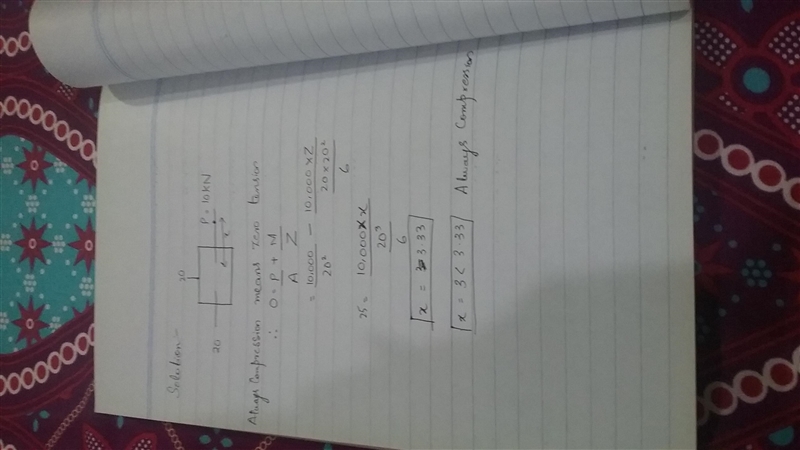 Solution -
20
20
P = 10KN
x
Always Compression means zero tension
∴ 0 = P/A + M/Z
= 10,000/20² - 10,000 × Z/(20 × 20²/6)
25 = 10,000 × x/(20³/6)
x = 3.33
x = 3 < 3.33 Always Compression